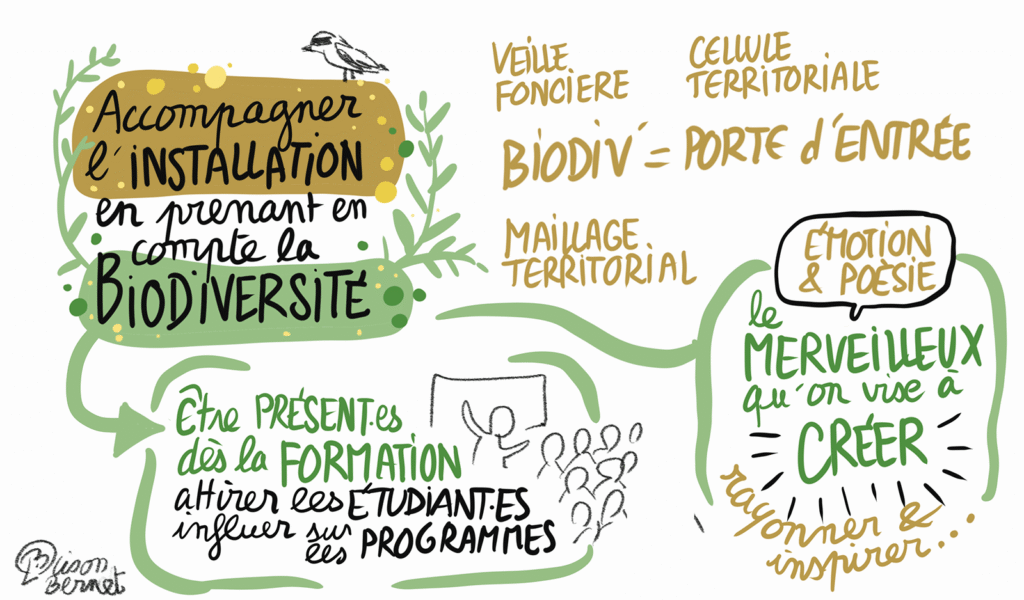 Accompagner
l'INSTALLATION
en prenant en
compte la
BIODIVERSITÉ
VEILLE
FONCIERE
CELLULE
TERRITORIALE
BIODIV' = PORTE d'ENTRÉE
MAILLAGE
TERRITORIAL
ÉMOTION
& POÈSIE
le
MERVEILLEUX
qu'on vise à
CRÉER
rayonner &
inspirer...
Être PRÉSENT.es
dès la FORMATION
attirer les ÉTUDIANT.ES
influer sur
les PROGRAMMES
Bernet